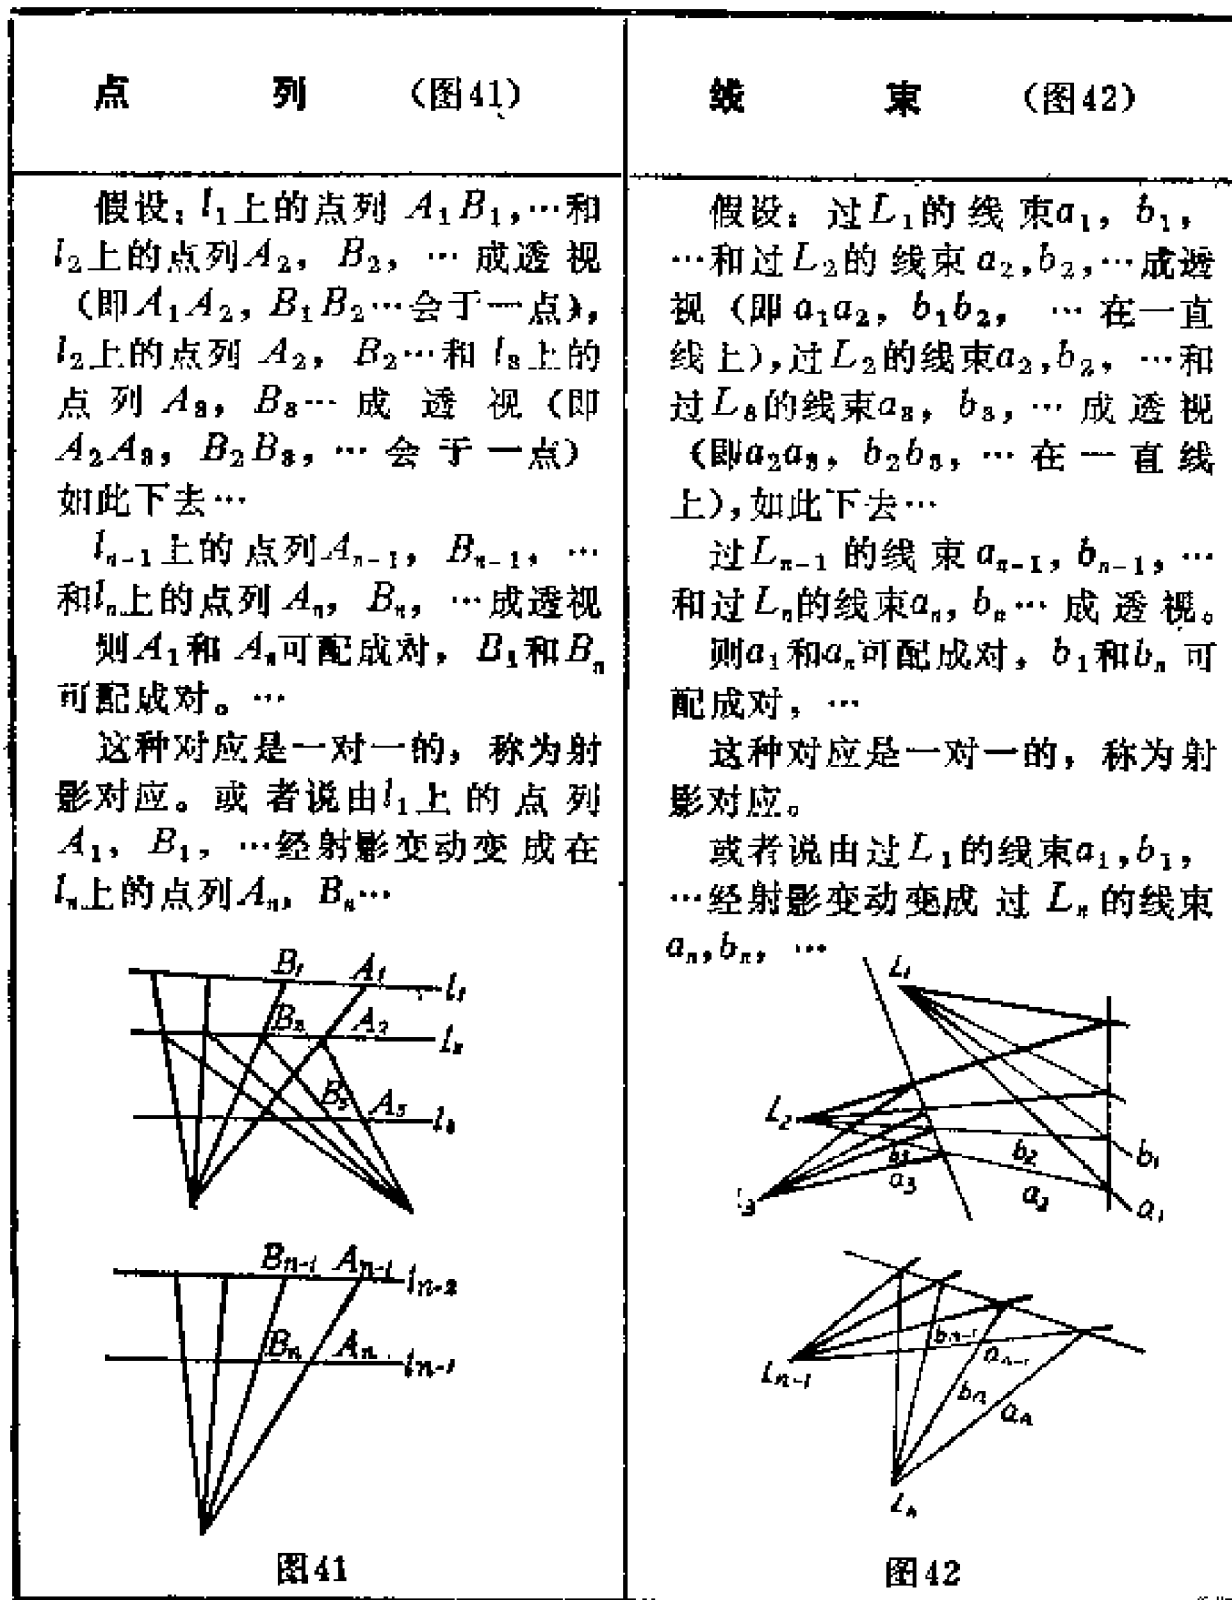 点 列 （图41）
假设：l₁上的点列 A₁B₁，…和
l₂上的点列A₂，B₂，… 成透视
（即A₁A₂，B₁B₂…会于一点），
l₂上的点列 A₂，B₂…和 l₃上的
点列 A₃，B₃… 成透视（即
A₂A₃，B₂B₃，… 会于一点）
如此下去…
lₙ₋₁上的点列Aₙ₋₁，Bₙ₋₁，…
和lₙ上的点列 Aₙ，Bₙ，…成透视
则A₁和 Aₙ可配成对，B₁和Bₙ
可配成对。…
这种对应是一对一的，称为射
影对应。或者说由l₁上的点列
A₁，B₁，…经射影变动变成在
lₙ上的点列Aₙ，Bₙ…
B₁ A₁ l₁
B₂ A₂
B₃ A₃ l₃
Bₙ₋₁ Aₙ₋₁ lₙ₋₂
Bₙ Aₙ lₙ₋₁
图41
线 束 （图42）
假设：过L₁的线束a₁，b₁，
…和过L₂的线束a₂，b₂，…成透
视（即a₁a₂，b₁b₂，… 在一直
线上），过L₂的线束a₂，b₂，…和
过L₃的线束a₃，b₃，… 成透视
（即a₂a₃，b₂b₃，… 在一直线
上），如此下去…
过Lₙ₋₁的线束aₙ₋₁，bₙ₋₁，…
和过Lₙ的线束aₙ，bₙ… 成透视。
则a₁和aₙ可配成对，b₁和bₙ可
配成对，…
这种对应是一对一的，称为射
影对应。
或者说由过L₁的线束a₁，b₁，
…经射影变动变成 过Lₙ的线束
aₙ，bₙ，…
L₁
L₂
b₃ b₂ b₁
a₃ a₂ a₁
bₙ₋₁
aₙ₋₁
Lₙ₋₁
bₙ aₙ
Lₙ
图42